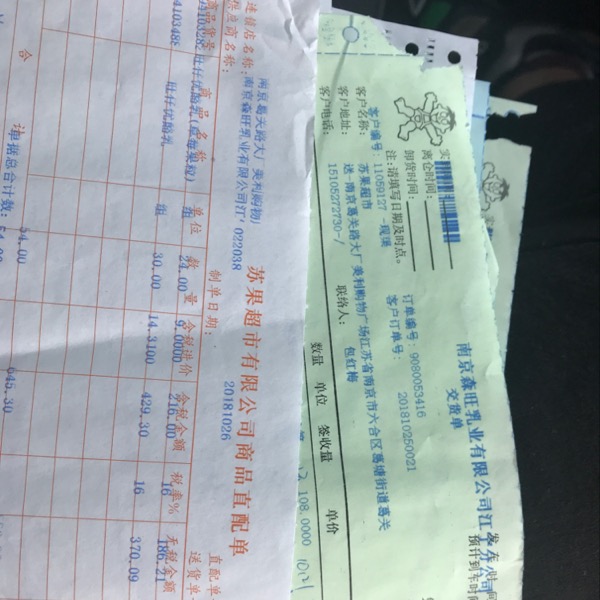 苏果超市有限公司商品直配单
连锁店名称:南京葛关路大厂美利购物广
供应商名称:南京森旺乳业有限公司江' 022038
制单日期: 20181026
直配单
送货单
商品货号 商品名称 单位 数量 含税进价 含税金额 税率% 无税金额
组 24.00 9.0000 216.00 16 186.21
4103488 旺仔优酪乳 组 30.00 14.3100 429.30 16 370.09
合
单据总合计数: 54.00 645.30
南京森旺乳业有限公司江
交货单
订单编号: 9080053416
客户订单号: 201810250021
离仓时间:
卸货时间:
注:请填写日期及时点。
客户编号: 11059127 -现场
客户名称: 苏果超市
客户地址: 送-南京葛关路大厂美利购物广场江苏省南京市六合区葛塘街道葛关
客户电话: 15105272730-/ 联络人: 包红梅
数量 单位 签收量 单价
108.0000